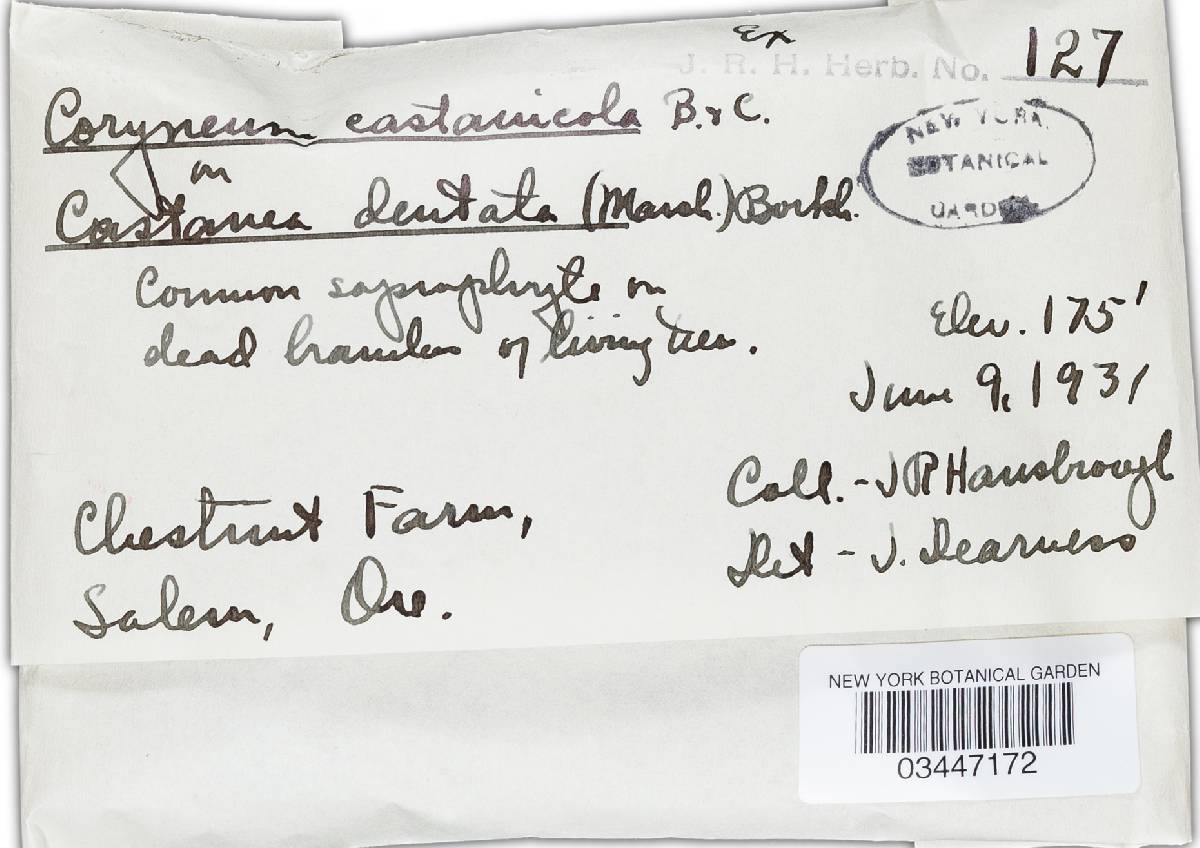 Ex
J. R. H. Herb. No. 127
Coryneum castanicola B. & C.
NEW YORK
BOTANICAL
GARDEN
on
Castanea dentata (Marsh.) Borkh.
Common saprophyte on
dead branches of living trees.
Elev. 175'
June 9, 1931
Chestnut Farm,
Salem, Ore.
Coll. - J R Hansbrough
Det - J. Dearness
NEW YORK BOTANICAL GARDEN
03447172